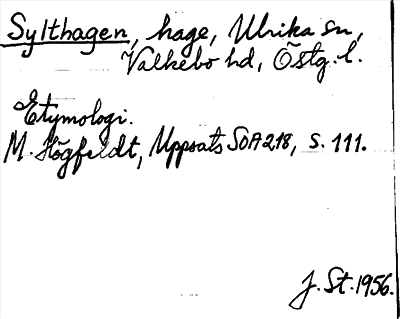 Sylthagen, hage, Ulrika sn,
Valkebo hd, Östg. l.
Etymologi.
M. Högfeldt, Uppsats SOA 218, s. 111.
J. St. 1956.